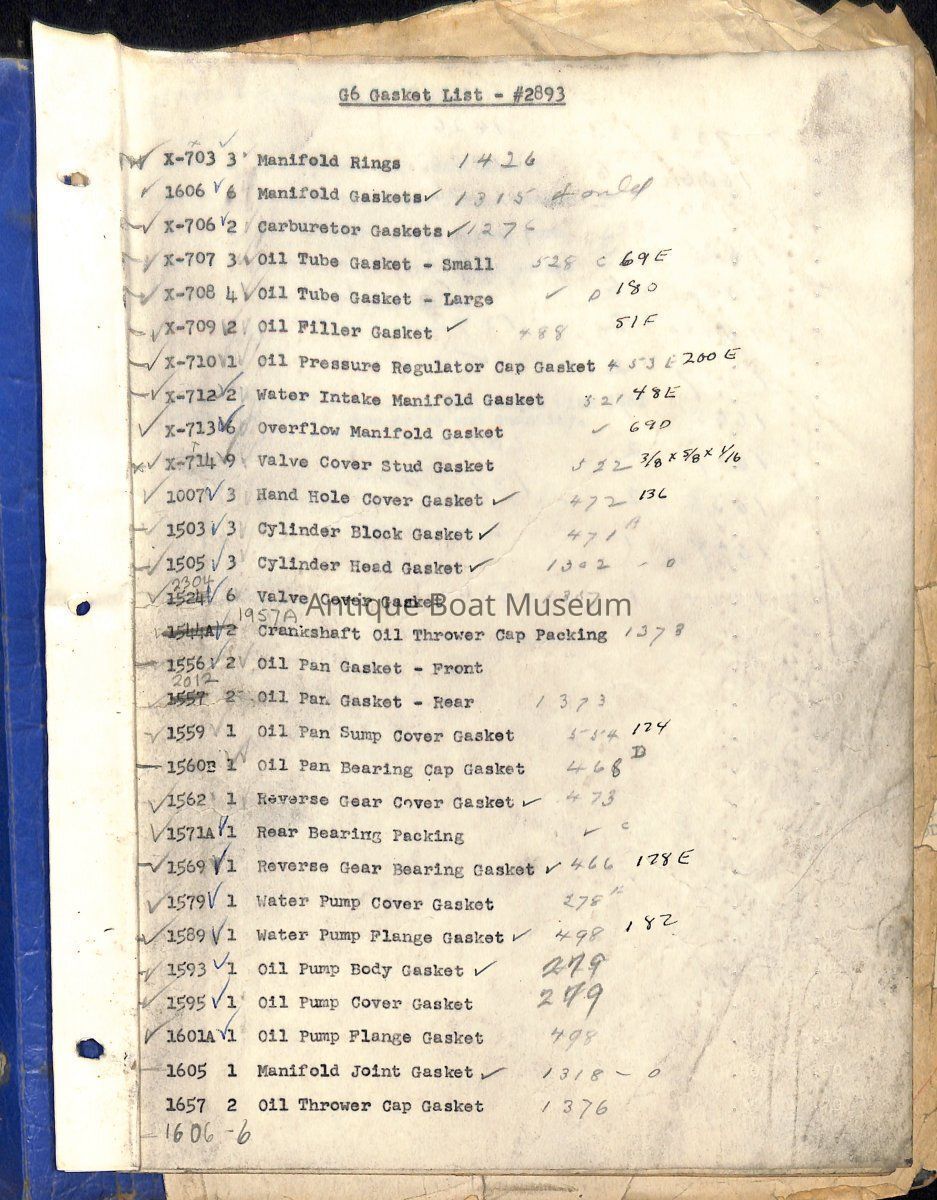 G6 Gasket List - #2893
X-703 3 Manifold Rings 1426
1606 ✓ 6 Manifold Gaskets ✓ 1315
X-706 ✓ 2 Carburetor Gaskets ✓ 1276
X-707 3 ✓ Oil Tube Gasket - Small 528 C 69E
X-708 4 ✓ Oil Tube Gasket - Large ✓ D 180
X-709 2 Oil Filler Gasket ✓ 488 51F
X-710 1 Oil Pressure Regulator Cap Gasket 453 E 200 E
X-712 2 Water Intake Manifold Gasket 321 48E
X-713 6 Overflow Manifold Gasket ✓ 69D
X-714 9 Valve Cover Stud Gasket 522 3/8 x 5/8 x 1/16
1007 ✓ 3 Hand Hole Cover Gasket ✓ 472 136
1503 ✓ 3 Cylinder Block Gasket ✓ 471 A
1505 ✓ 3 Cylinder Head Gasket ✓ 1302 - 0
2304
1524 ✓ 6 Valve Cover Gasket
Antique Boat Museum
1957A
1544A ✓ 2 Crankshaft Oil Thrower Cap Packing 1378
1556 ✓ 2 Oil Pan Gasket - Front
2012
1557 2 Oil Pan Gasket - Rear 1373
1559 1 Oil Pan Sump Cover Gasket 554 124
1560B 1 Oil Pan Bearing Cap Gasket 468 D
1562 1 Reverse Gear Cover Gasket ✓ 473
1571A ✓ 1 Rear Bearing Packing ✓ C
1569 ✓ 1 Reverse Gear Bearing Gasket ✓ 466 128E
1579 ✓ 1 Water Pump Cover Gasket 278 A
1589 ✓ 1 Water Pump Flange Gasket ✓ 498 182
1593 ✓ 1 Oil Pump Body Gasket ✓ 279
1595 ✓ 1 Oil Pump Cover Gasket 279
1601A ✓ 1 Oil Pump Flange Gasket 498
1605 1 Manifold Joint Gasket ✓ 1318 - 0
1657 2 Oil Thrower Cap Gasket 1376
1606 - 6